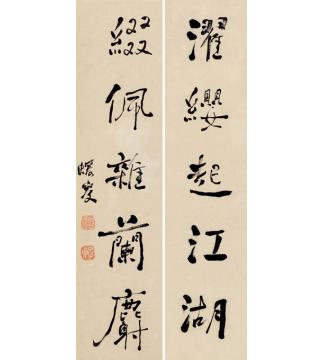 濯纓起江湖
綴佩雜蘭麝
曙叟